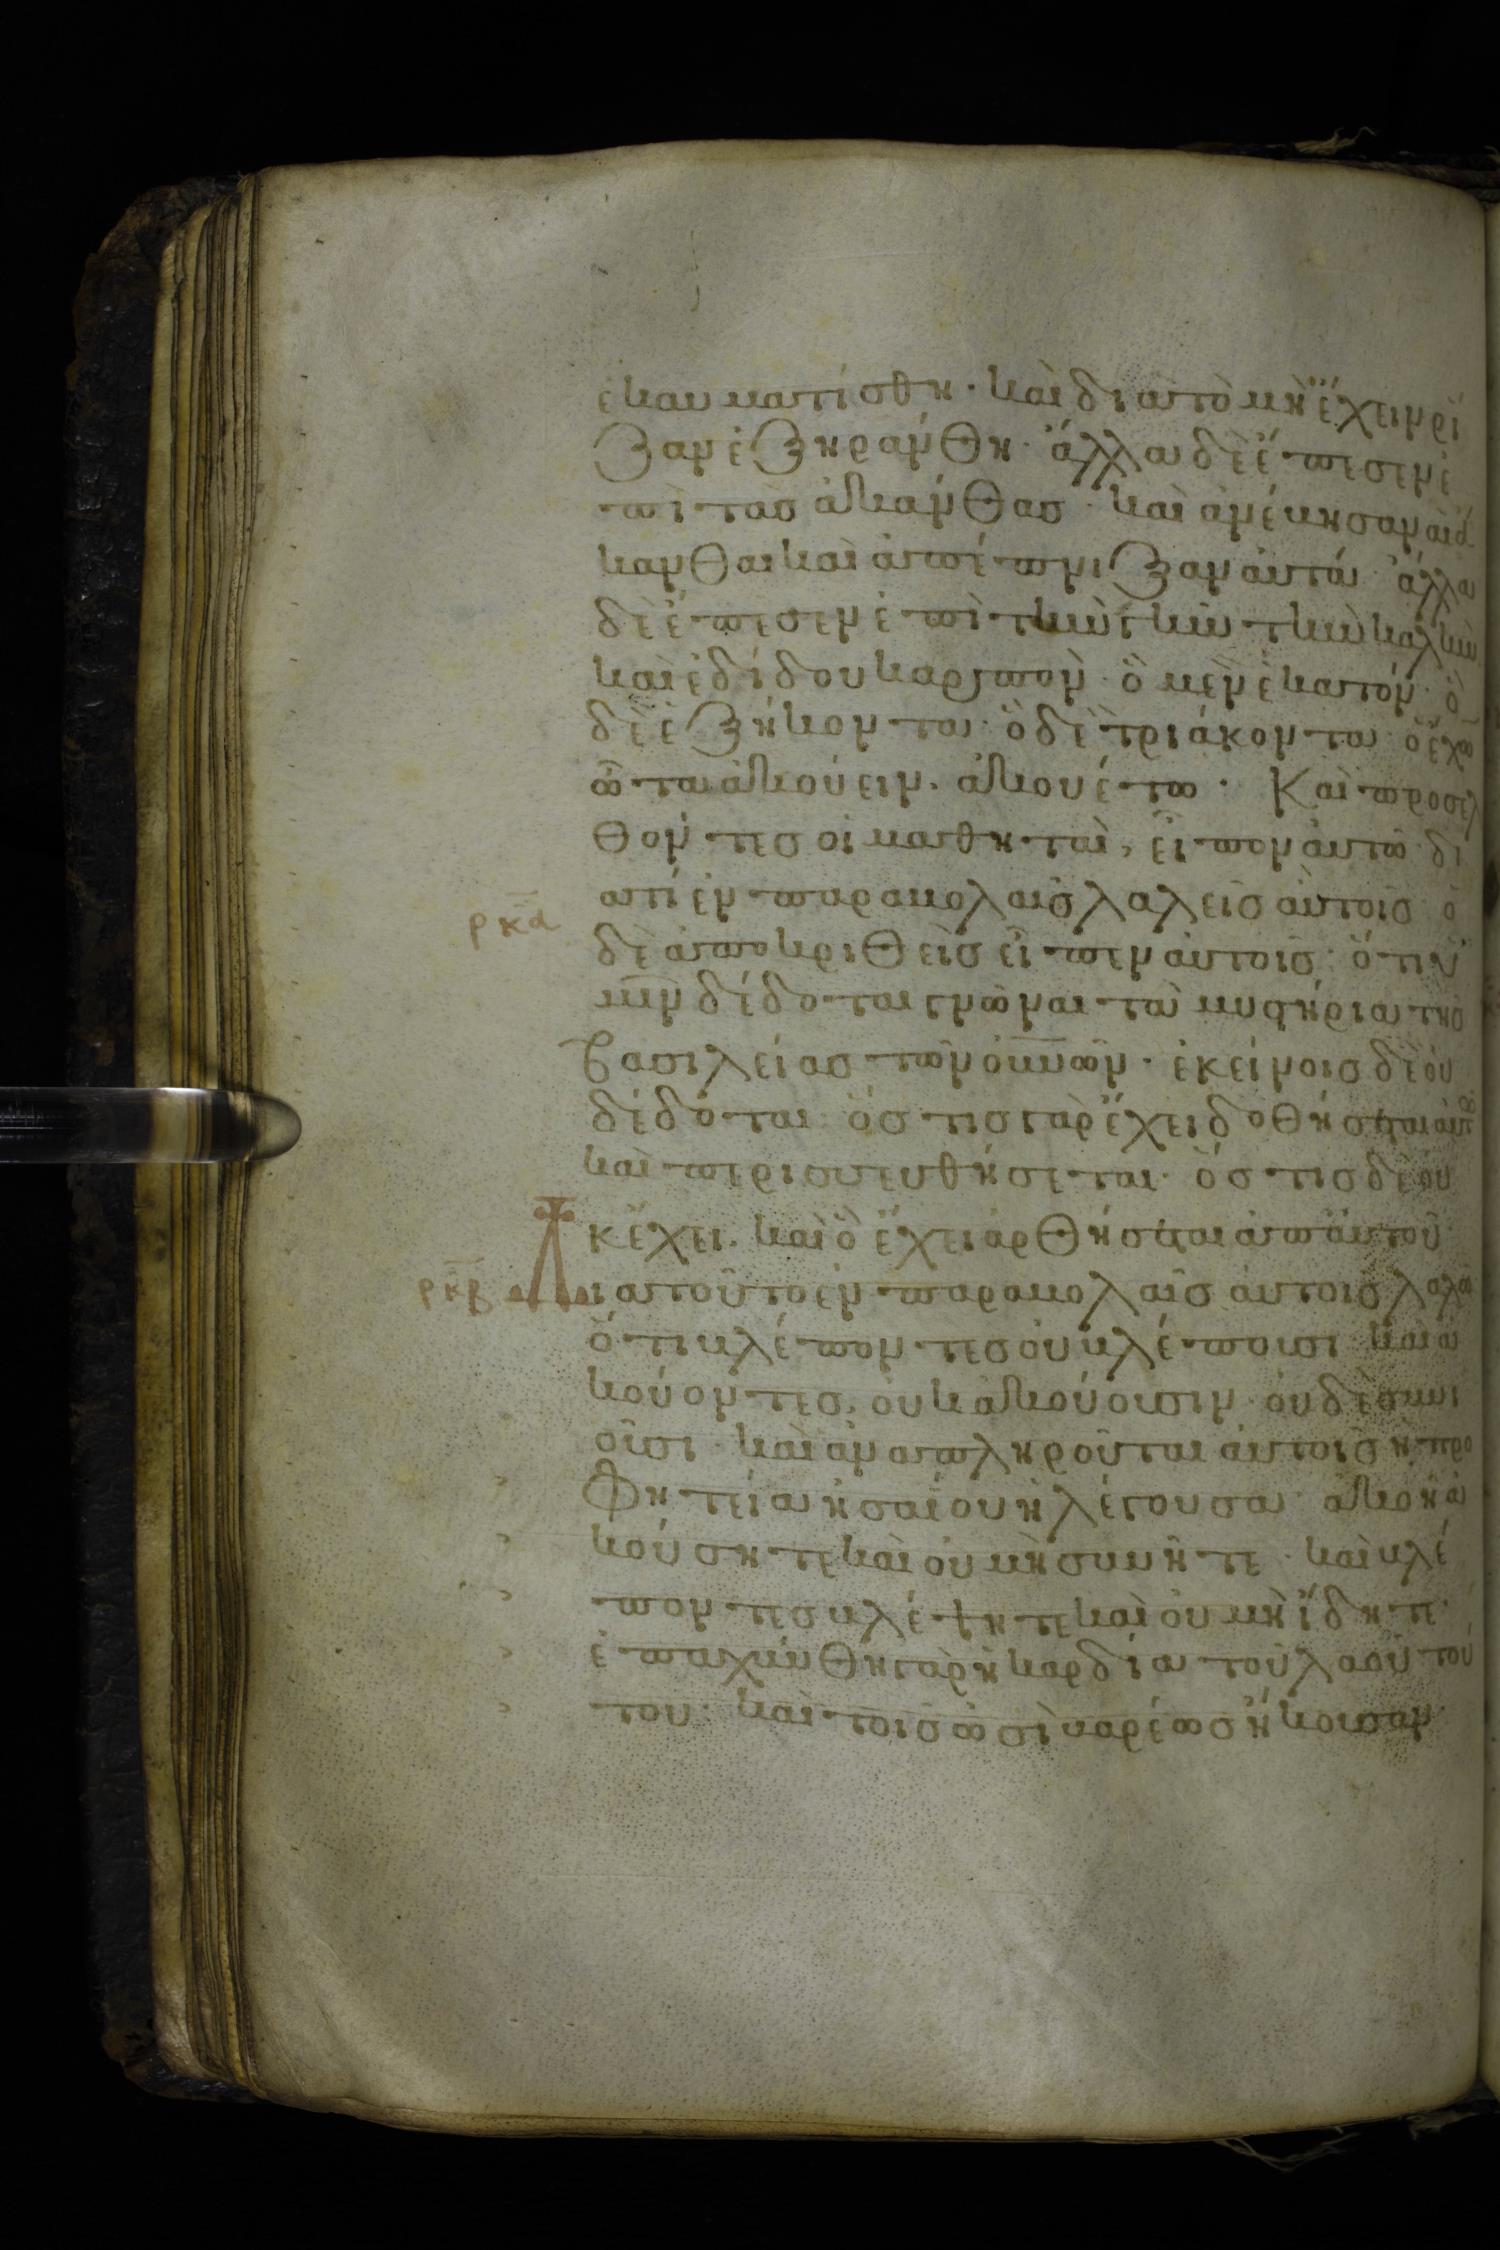 ἐκαυματίσθη · καὶ διατὸ μὴ ἔχειν ρί
ζαν ἐξηράνθη · ἄλλα δὲ ἔπεσεν ἐ
πὶ τὰσ ἀκάνθασ · καὶ ἀνέβησαν αἱ ἄ
κανθαι καὶ ἀπέπνιξαν αὐτά · ἄλλα
δὲ ἔπεσεν ἐπὶ τὴν γῆν τὴν καλὴν
καὶ ἐδίδου καρπὸν · ὃ μὲν ἑκατόν · ὃ
δὲ ἑξήκοντα · ὃ δὲ τριάκοντα · ὁ ἔχων
ὦτα ἀκούειν · ἀκουέτω · Καὶ προσελ
θόντεσ οἱ μαθηταὶ, εἶπον αὐτῶ · δι
ατί ἐν παραβολαῖσ λαλεῖσ αὐτοῖσ · ὁ
ρκα
δὲ ἀποκριθεὶσ εἶπεν αὐτοῖσ · ὅτι ὑ
μῖν δέδοται γνῶναι τὰ μυστήρια τῆσ
βασιλείασ τῶν οὐνῶν · ἐκείνοισ δὲ οὐ
δέδοται · ὅστισ γὰρ ἔχει δοθήσεται αὐτῶ
καὶ περισσευθήσεται · ὅστισ δὲ οὐ
κ ἔχει · καὶ ὃ ἔχει ἀρθήσεται ἀπ αὐτοῦ
ρκβ Διατοῦτο ἐν παραβολαῖσ αὐτοῖσ λαλῶ
ὅτι βλέποντεσ οὐ βλέπουσι · καὶ ἀ
κούοντεσ, οὐκ ἀκούουσιν · οὐδὲ συνι
οῦσι · καὶ ἀναπληροῦται αὐτοῖσ ἡ προ
φητεία ἡσαΐου ἡ λέγουσα · ἀκοῆ ἀ
κούσητε καὶ οὐ μὴ συνῆτε · καὶ βλέ
ποντεσ βλέψητε καὶ οὐ μὴ ἴδητε ·
ἐπαχύνθη γὰρ ἡ καρδία τοῦ λαοῦ τού
του · καὶ τοῖσ ὠσὶ βαρέωσ ἤκουσαν